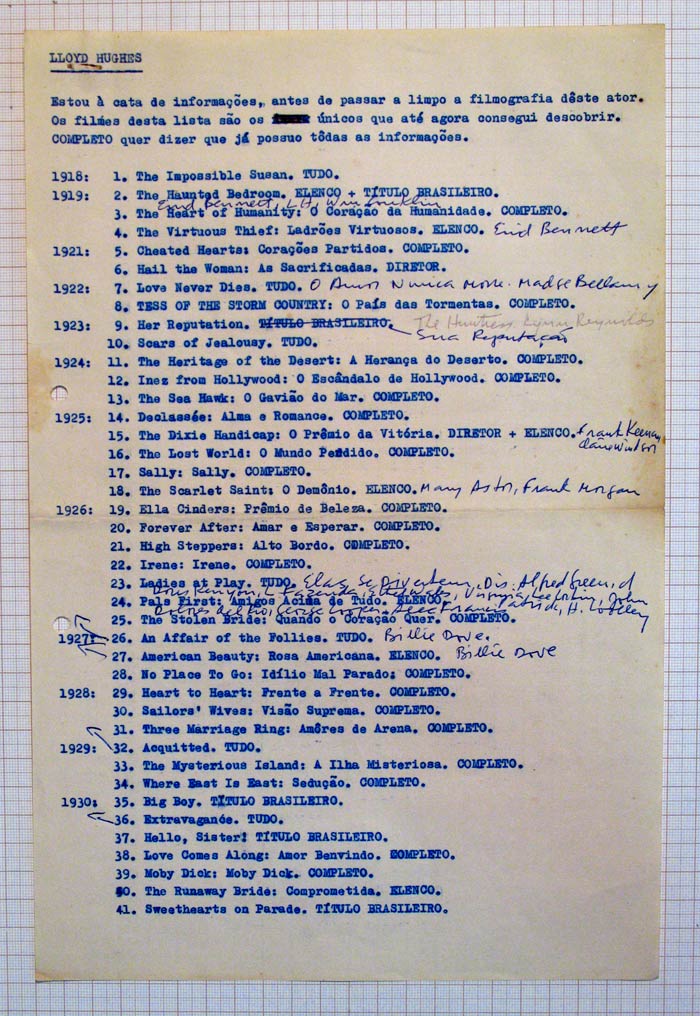 LLOYD HUGHES
Estou à cata de informações, antes de passar a limpo a filmografia dêste ator.
Os filmes desta lista são os únicos que até agora consegui descobrir.
COMPLETO quer dizer que já possuo tôdas as informações.
1918: 1. The Impossible Susan. TUDO.
1919: 2. The Haunted Bedroom. ELENCO + TÍTULO BRASILEIRO.
Enid Bennett, L.H, Wm
3. The Heart of Humanity: O Coração da Humanidade. COMPLETO.
4. The Virtuous Thief: Ladrões Virtuosos. ELENCO. Enid Bennett
1921: 5. Cheated Hearts: Corações Partidos. COMPLETO.
6. Hail the Woman: As Sacrificadas. DIRETOR.
1922: 7. Love Never Dies. TUDO. O Amor Nunca Morre. Madge Bellamy
8. TESS OF THE STORM COUNTRY: O País das Tormentas. COMPLETO.
1923: 9. Her Reputation. TÍTULO BRASILEIRO. The Huntress. Lynn Reynolds
Sua Reputação
10. Scars of Jealousy. TUDO.
1924: 11. The Heritage of the Desert: A Herança do Deserto. COMPLETO.
12. Inez from Hollywood: O Escândalo de Hollywood. COMPLETO.
13. The Sea Hawk: O Gavião do Mar. COMPLETO.
1925: 14. Declassée: Alma e Romance. COMPLETO.
15. The Dixie Handicap: O Prêmio da Vitória. DIRETOR + ELENCO. Frank Keenan
Claire Windsor
16. The Lost World: O Mundo Perdido. COMPLETO.
17. Sally: Sally. COMPLETO.
18. The Scarlet Saint: O Demônio. ELENCO. Mary Astor, Frank Morgan
1926: 19. Ella Cinders: Prêmio de Beleza. COMPLETO.
20. Forever After: Amar e Esperar. COMPLETO.
21. High Steppers: Alto Bordo. COMPLETO.
22. Irene: Irene. COMPLETO.
23. Ladies at Play. TUDO. Elas Se Divertem, Dir. Alfred Green, d
Doris Kenyon, L. Fazenda, Ethel Wales, Virginia Lee Corbin, John Patrick, H. Tolley
24. Pals First: Amigos Acima de Tudo. ELENCO.
Dolores del Rio, George Cooper, Alec Francis
25. The Stolen Bride: Quando o Coração Quer. COMPLETO.
1927: 26. An Affair of the Follies. TUDO. Billie Dove.
27. American Beauty: Rosa Americana. ELENCO. Billie Dove
28. No Place To Go: Idílio Mal Parado; COMPLETO.
1928: 29. Heart to Heart: Frente a Frente. COMPLETO.
30. Sailors' Wives: Visão Suprema. COMPLETO.
31. Three Marriage Ring: Amôres de Arena. COMPLETO.
1929: 32. Acquitted. TUDO.
33. The Mysterious Island: A Ilha Misteriosa. COMPLETO.
34. Where East Is East: Sedução. COMPLETO.
1930: 35. Big Boy. TÍTULO BRASILEIRO.
36. Extravagance. TUDO.
37. Hello, Sister! TÍTULO BRASILEIRO.
38. Love Comes Along: Amor Benvindo. COMPLETO.
39. Moby Dick: Moby Dick. COMPLETO.
40. The Runaway Bride: Comprometida. ELENCO.
41. Sweethearts on Parade. TÍTULO BRASILEIRO.